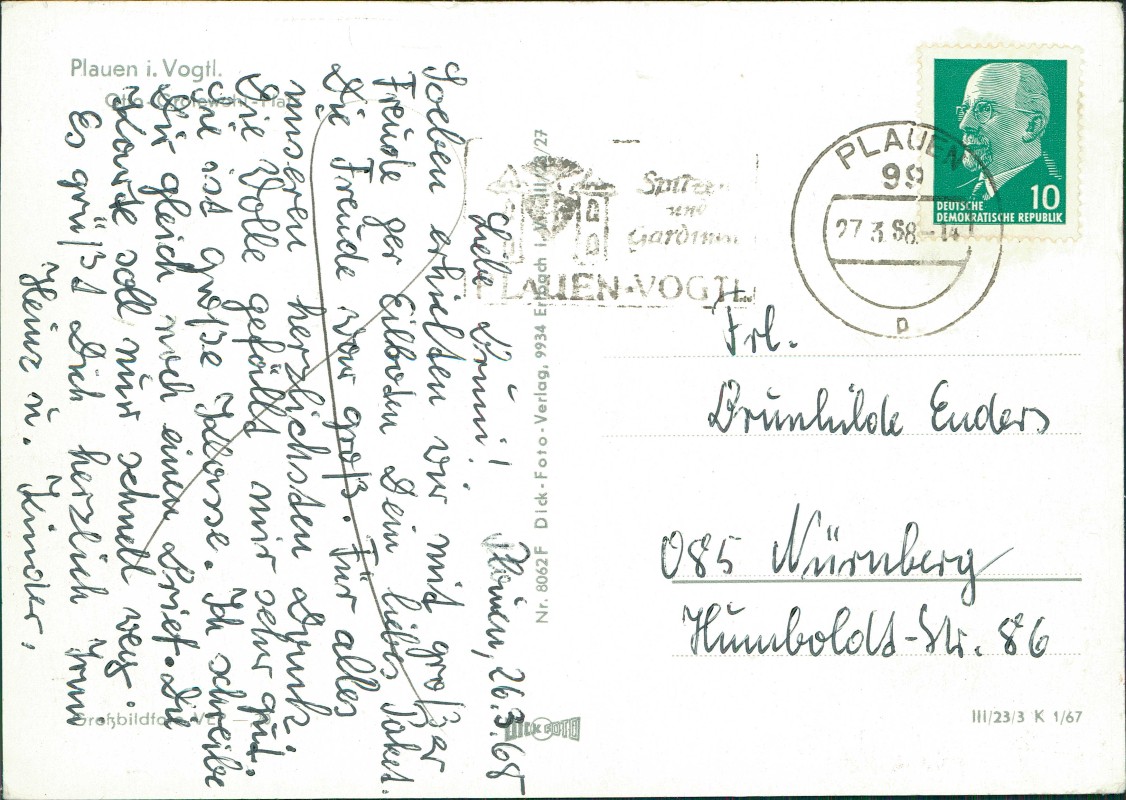 Plauen i. Vogtl.
Otto-Grotewohl-Platz
Plauen, 26.3.68
Liebe Bruni!
Soeben erhielten wir mit großer
Freude per Eilboten Dein liebes Paket.
Die Freude war groß. Für alles
unseren herzlichsten Dank.
Die Wolle gefällt mir sehr gut.
Sie ist große Klasse. Ich schreibe
Dir gleich noch einen Brief. Die
Karte soll nur schnell weg.
Es grüßt Dich herzlich
Heinz u. Kinder.
Großbildfoto VEB
Nr. 8062F Dick-Foto-Verlag, 9934 Erlbach i. V. III/23/27
DICK FOTO
Spitzen
und
Gardinen
PLAUEN-VOGTL.
PLAUEN
99
27.3.68-14
p
10
DEUTSCHE
DEMOKRATISCHE REPUBLIK
Frl.
Brunhilde Enders
085 Nürnberg
Humboldt-Str. 86
III/23/3 K 1/67